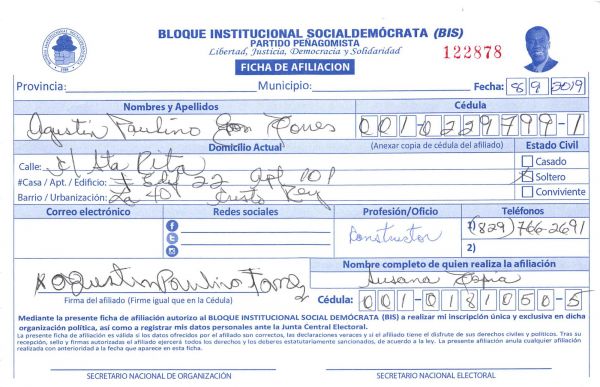 BLOQUE INSTITUCIONAL SOCIALDEMÓCRATA (BIS)
PARTIDO PEÑAGOMISTA
Libertad, Justicia, Democracia y Solidaridad
122878
FICHA DE AFILIACION
Provincia: Municipio: Fecha: 8 9 2019
Nombres y Apellidos Cédula
Agustin Paulino Torres 001-0229799-1
Domicilio Actual (Anexar copia de cédula del afiliado) Estado Civil
Calle: c/ Sta Rita
Casado
#Casa / Apt. / Edificio: # Edif 22 Apt 101
Soltero
Barrio / Urbanización: La 40 Cristo Rey
Conviviente
Correo electrónico Redes sociales Profesión/Oficio Teléfonos
Constructor 1) (829) 766-2691
2)
Nombre completo de quien realiza la afiliación
Agustin Paulino Torres Susana Tapia
Firma del afiliado (Firme igual que en la Cédula) Cédula: 001-0181050-5
Mediante la presente ficha de afiliación autorizo al BLOQUE INSTITUCIONAL SOCIAL DEMÓCRATA (BIS) a realizar mi inscripción única y exclusiva en dicha
organización política, así como a registrar mis datos personales ante la Junta Central Electoral.
La presente ficha de afiliación es válida si los datos ofrecidos por el afiliado son correctos, las declaraciones veraces y si el afiliado tiene el disfrute de sus derechos civiles y políticos. Tras su
recepción, sello y firmas autorizadas el afiliado ejercerá todos los derechos y los deberes estatutariamente sancionados, de acuerdo a la ley. La presente afiliación anula cualquier afiliación
realizada con anterioridad a la fecha que aparece en esta ficha.
SECRETARIO NACIONAL DE ORGANIZACIÓN SECRETARIO NACIONAL ELECTORAL